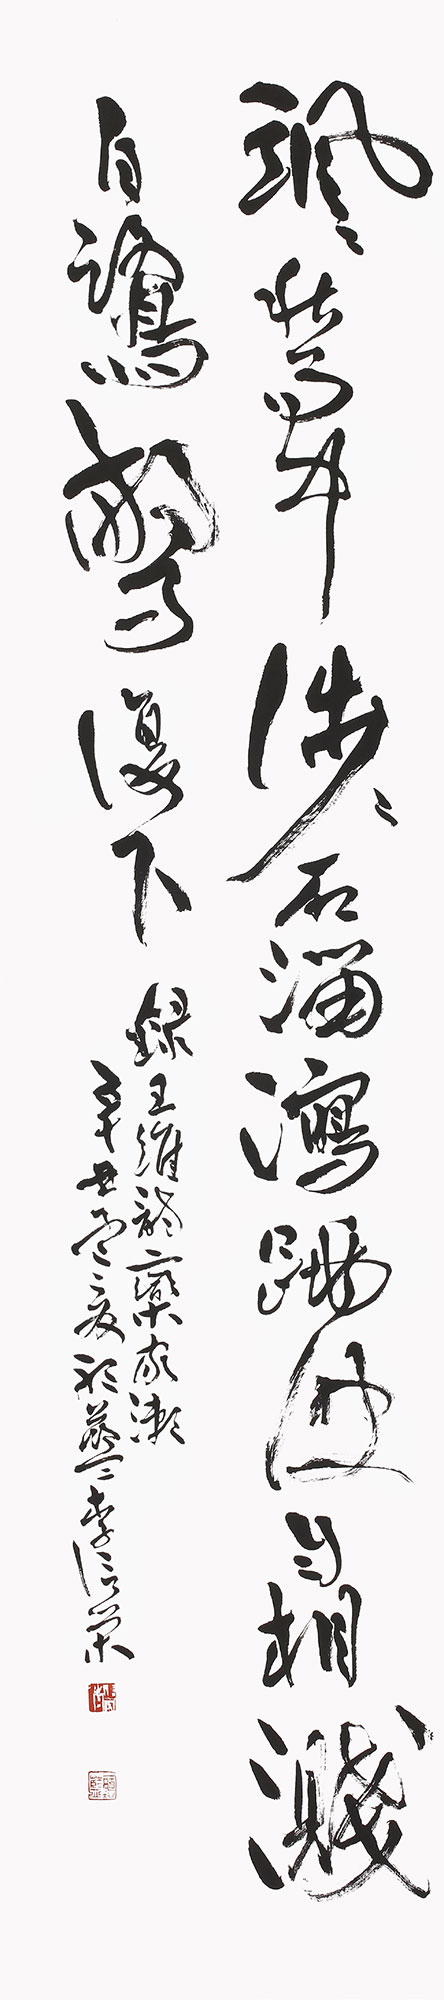 颯〻秋雨中淺〻石溜瀉跳波自相濺
白鷺驚復下
錄王維詩欒家瀨
辛丑孟夏於燕李信榮